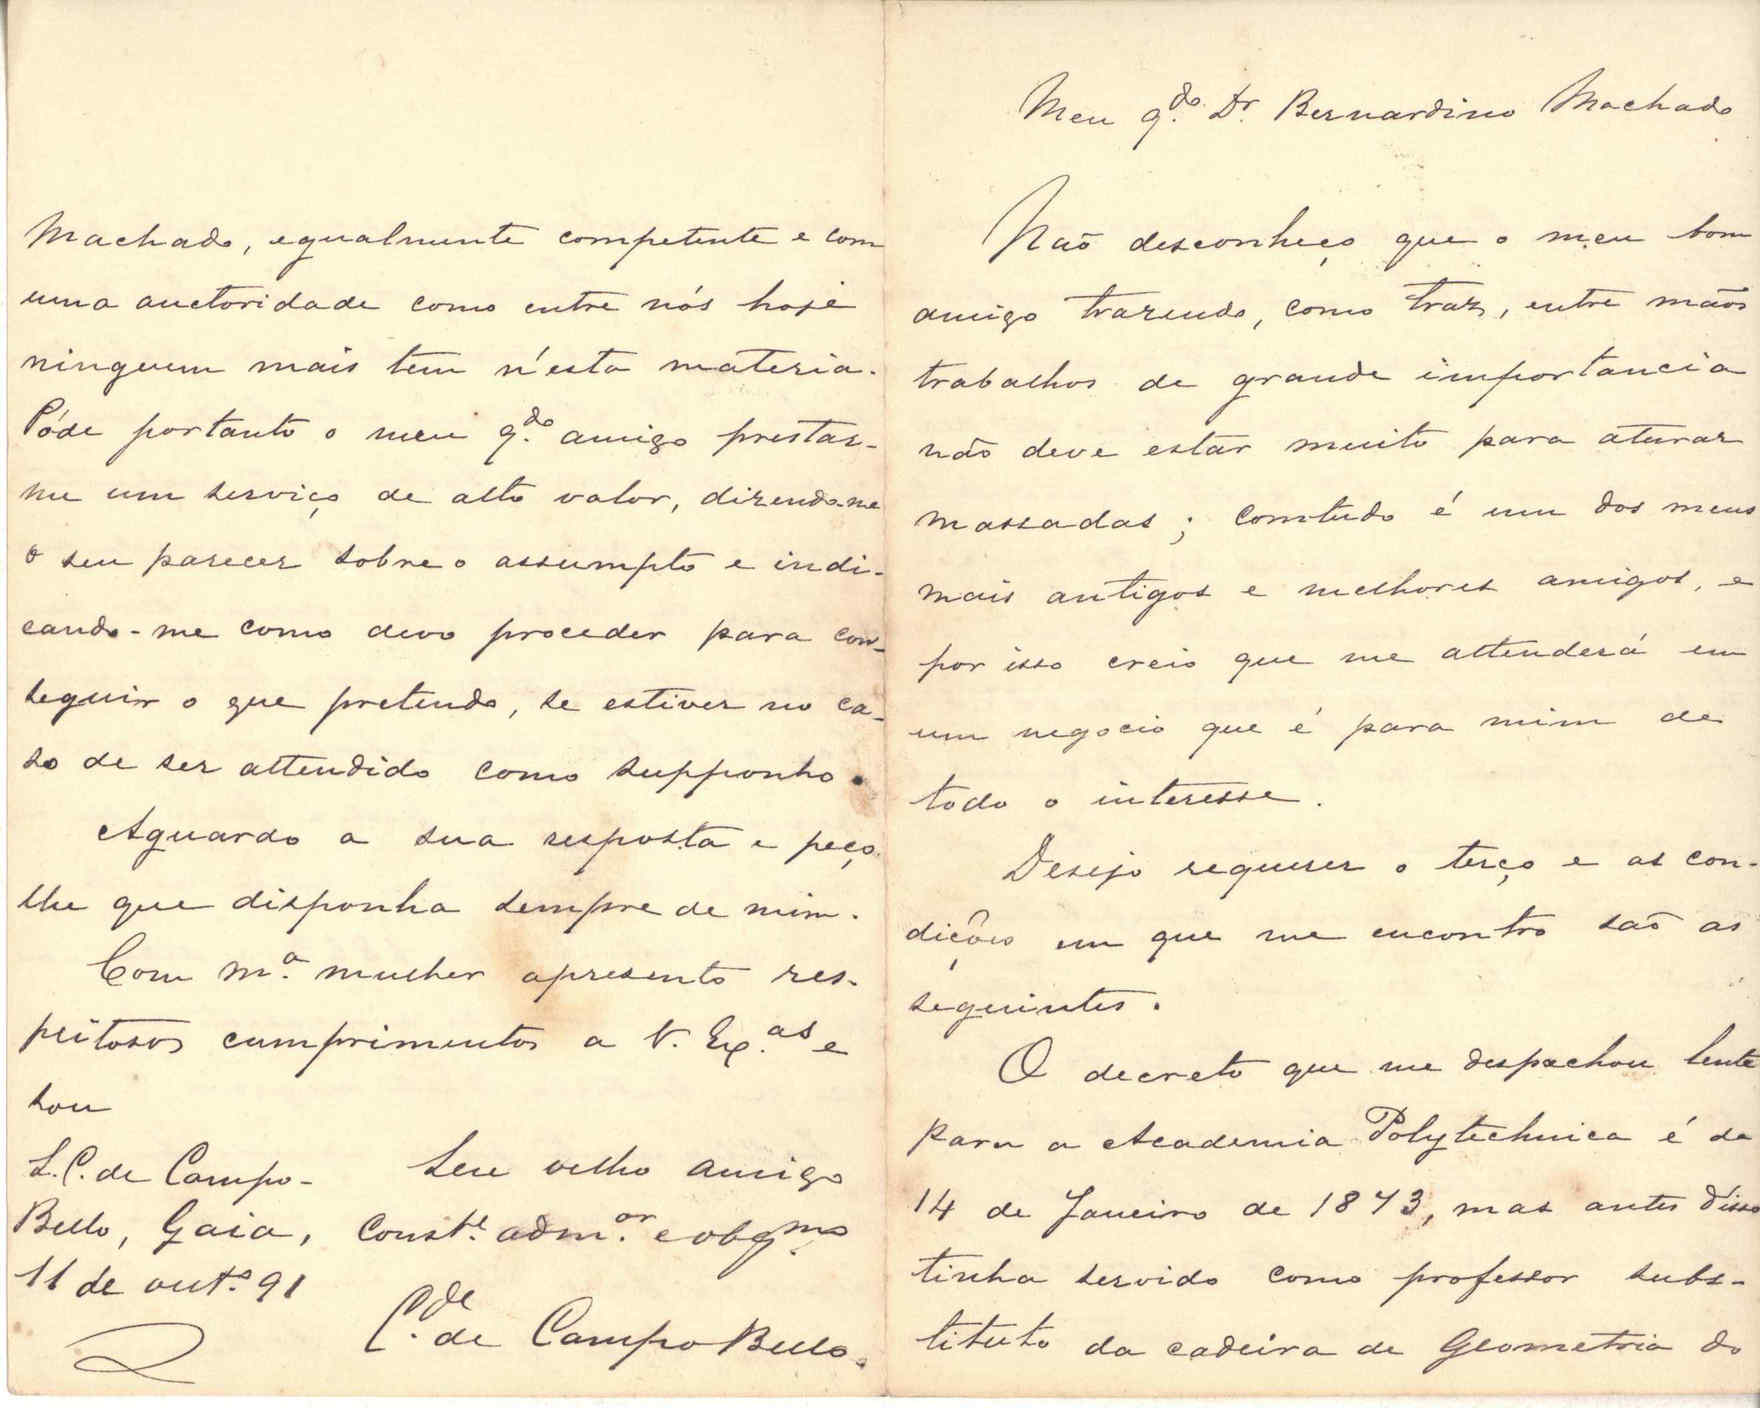 Meu q.do Dr. Bernardino Machado
Não desconheço que o meu bom
amigo trazendo, como traz, entre mãos
trabalhos de grande importancia
não deve estar muito para aturar
massadas; comtudo é um dos meus
mais antigos e melhores amigos, e
por isso creio que me attenderá em
um negocio que é para mim de
todo o interesse.
Desejo requerer o terço e as con-
dições em que me encontro são as
seguintes.
O decreto que me despachou lente
para a Academia Polytechnica é de
14 de Janeiro de 1873, mas antes disso
tinha servido como professor subs-
tituto da cadeira de Geometria do
Machado, egualmente competente e com
uma auctoridade como entre nós hoje
ninguem mais tem n'esta materia.
Póde portanto o meu q.do amigo prestar-
me um serviço de alto valor, dizendo-me
o seu parecer sobre o assumpto e indi-
cando-me como devo proceder para con-
seguir o que pretendo, se estiver no ca-
so de ser attendido como supponho.
Aguardo a sua resposta e peço-
lhe que disponha sempre de mim.
Com m.a mulher apresento res-
peitosos cumprimentos a V. Ex.as e
sou
S.C. de Campo-
Bello, Gaia,
11 de out.o 91
Seu velho amigo
Const.e adm.or e obg.mo
C.de de Campo Bello.